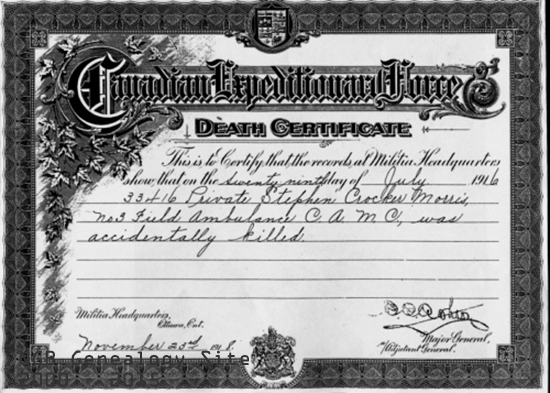 Canadian Expeditionary Force
DEATH CERTIFICATE
This is to Certify that the records at Militia Headquarters
show, that on the twenty ninth day of July 1916
33416 Private Stephen Crocker Morris,
No 3 Field Ambulance C. A. M. C, was
accidentally killed.
Militia Headquarters,
Ottawa, Ont.
November 23rd 1918.
Major General,
Adjutant General.
Genealogy Site